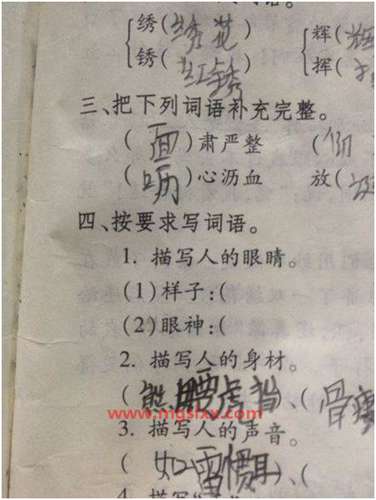 绣(绣花) 辉(辉
锈(红锈) 挥(
三、把下列词语补充完整。
(面)肃严整 (
(呖)心沥血 放(
四、按要求写词语。
1. 描写人的眼睛。
(1)样子:(
(2)眼神:(
2. 描写人的身材。
(熊腰虎背)、(骨瘦
www.mgslxx.com
3. 描写人的声音。
(如雷惯耳)、(
4. 描写